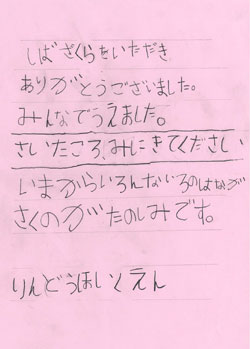 しばざくらをいただき
ありがとうございました。
みんなでうえました。
さいたころ、みにきてください
いまからいろんないろのはなが
さくのがたのしみです。
りんどうほいくえん